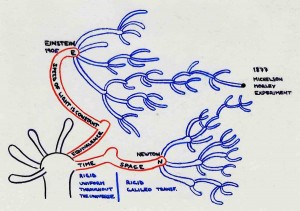 EINSTEIN
1905
E
SPEED OF LIGHT IS CONSTANT
MICHELSON
MORLEY
EXPERIMENT
EQUIVALENCE
NEWTON
TIME
SPACE
N
RIGID
UNIFORM
THROUGHOUT
THE UNIVERSE
RIGID
GALILEO TRANSF.